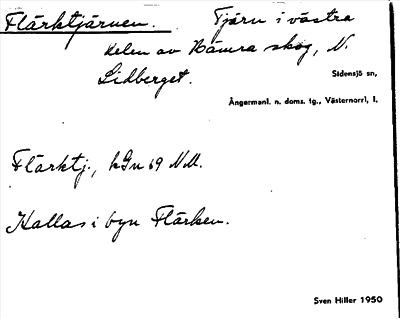 Flärktjärnen. Tjärn i västra
delen av Nämra skog, N.
Lidberget.
Sidensjö sn,
Ångermanl. n. doms. tg., Västernorrl, l.
Flärktj., kGn 69 N.M.
Kallas i byn Flärken.
Sven Hiller 1950